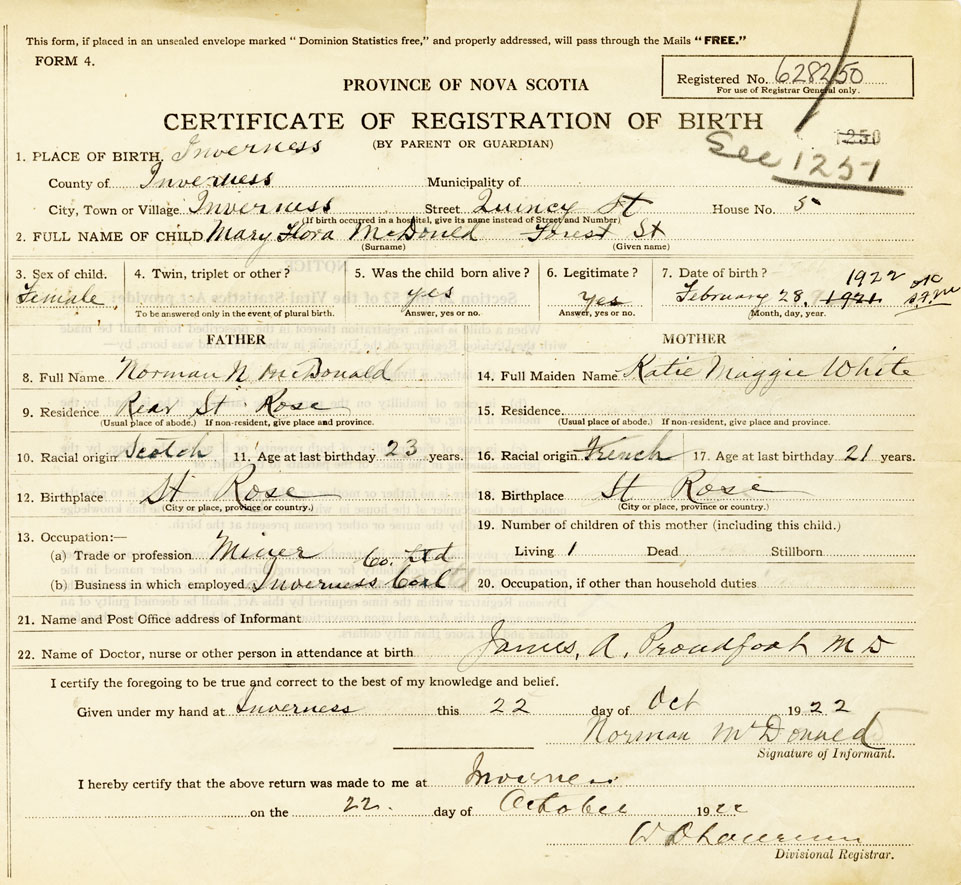 This form, if placed in an unsealed envelope marked " Dominion Statistics free," and properly addressed, will pass through the Mails "FREE."
FORM 4.
Registered No. 628250
For use of Registrar General only.
PROVINCE OF NOVA SCOTIA
CERTIFICATE OF REGISTRATION OF BIRTH
(BY PARENT OR GUARDIAN)
1250
See 1251
1. PLACE OF BIRTH. Inverness
County of Inverness Municipality of
City, Town or Village Inverness Street Quincy St House No. 5
(If birth occurred in a hospital, give its name instead of Street and Number)
2. FULL NAME OF CHILD Mary Flora McDonald Forest St
(Surname) (Given name)
3. Sex of child. 4. Twin, triplet or other? 5. Was the child born alive? 6. Legitimate? 7. Date of birth? 1922
Female yes Yes February 28, 1921
To be answered only in the event of plural birth. Answer, yes or no. Answer, yes or no. Month, day, year.
FATHER MOTHER
8. Full Name Norman N McDonald 14. Full Maiden Name Katie Maggie White
9. Residence Rear St Rose 15. Residence.
(Usual place of abode.) If non-resident, give place and province. (Usual place of abode.) If non-resident, give place and province.
10. Racial origin Scotch 11. Age at last birthday 23 years. 16. Racial origin French 17. Age at last birthday 21 years.
12. Birthplace St Rose 18. Birthplace St Rose
(City or place, province or country.) (City or place, province or country.)
13. Occupation:— 19. Number of children of this mother (including this child.)
(a) Trade or profession Miner Living 1 Dead Stillborn
Co. Ltd
(b) Business in which employed Inverness Coal 20. Occupation, if other than household duties
21. Name and Post Office address of Informant
22. Name of Doctor, nurse or other person in attendance at birth James, A. Proudfoot M D
I certify the foregoing to be true and correct to the best of my knowledge and belief.
Given under my hand at Inverness this 22 day of Oct 1922
Norman McDonald
Signature of Informant.
I hereby certify that the above return was made to me at Inverness
on the 22. day of October 1922
Divisional Registrar.